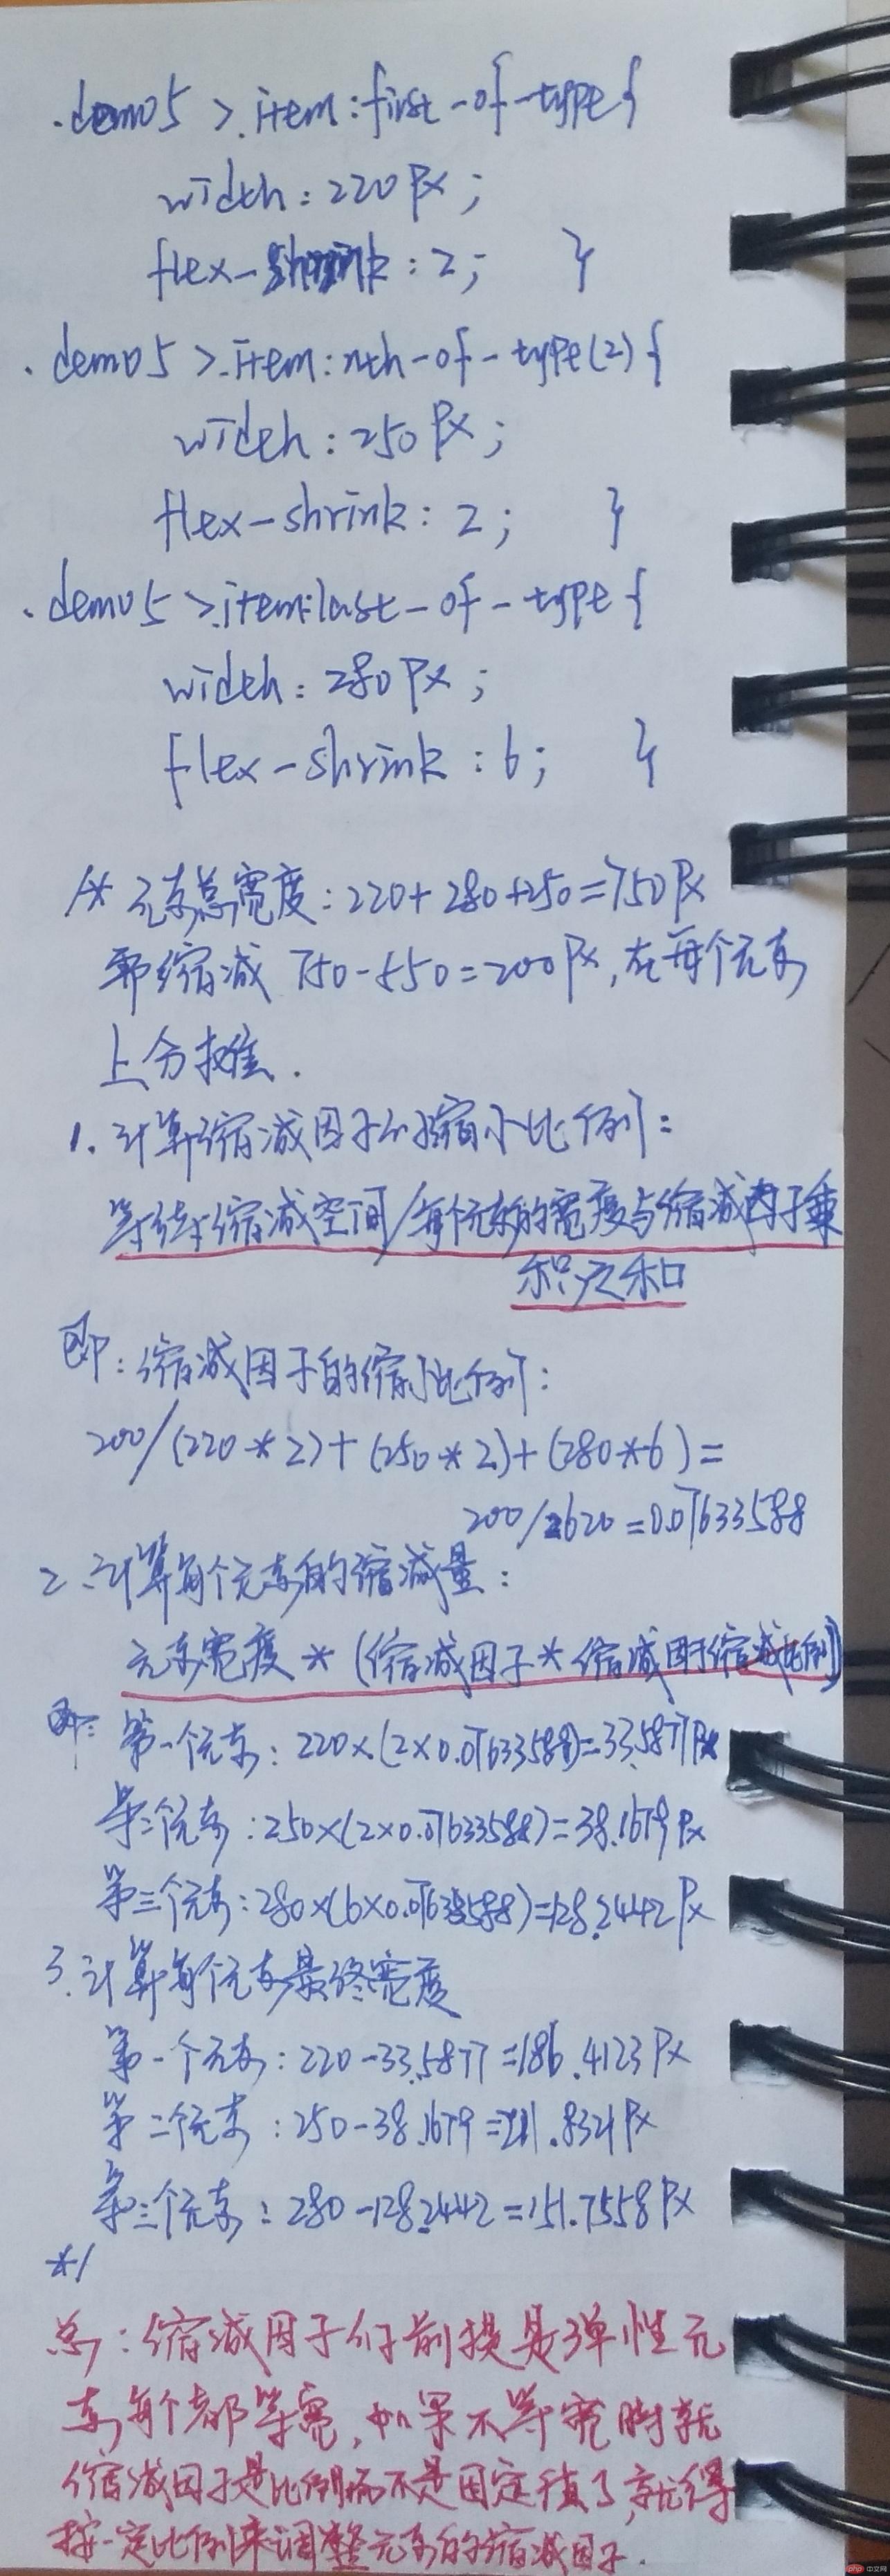 .demo5 > .item:first-of-type{
width:220px;
flex-shrink:2; }
.demo5 > .item:nth-of-type(2){
width:250px;
flex-shrink:2; }
.demo5 > .item:last-of-type{
width:280px;
flex-shrink:6; }
/* 元素总宽度:220+280+250=750px
那缩减 750-550=200px,在每个元素
上分摊.
1.计算缩减因子的缩小比例:
等待缩减空间/每个元素的宽度与缩减因子乘
积之和
即:缩减因子的缩小比例:
200/(220*2)+(250*2)+(280*6)=
200/2620=0.07633588
2.计算每个元素的缩减量:
元素宽度*(缩减因子*缩减因子缩减比例)
即:第一个元素:220×(2×0.07633588)=33.5877px
第二个元素:250×(2×0.07633588)=38.1679px
第三个元素:280×(6×0.07633588)=128.2442px
3.计算每个元素最终宽度
第一个元素:220-33.5877=186.4123px
第二个元素:250-38.1679=211.8321px
第三个元素:280-128.2442=151.7558px
*/
总:缩减因子的前提是弹性元
素每个都等宽,如果不等宽时就
缩减因子是比例而不是固定值了,就得
按一定比例来调整元素的缩减因子.
php 中文网